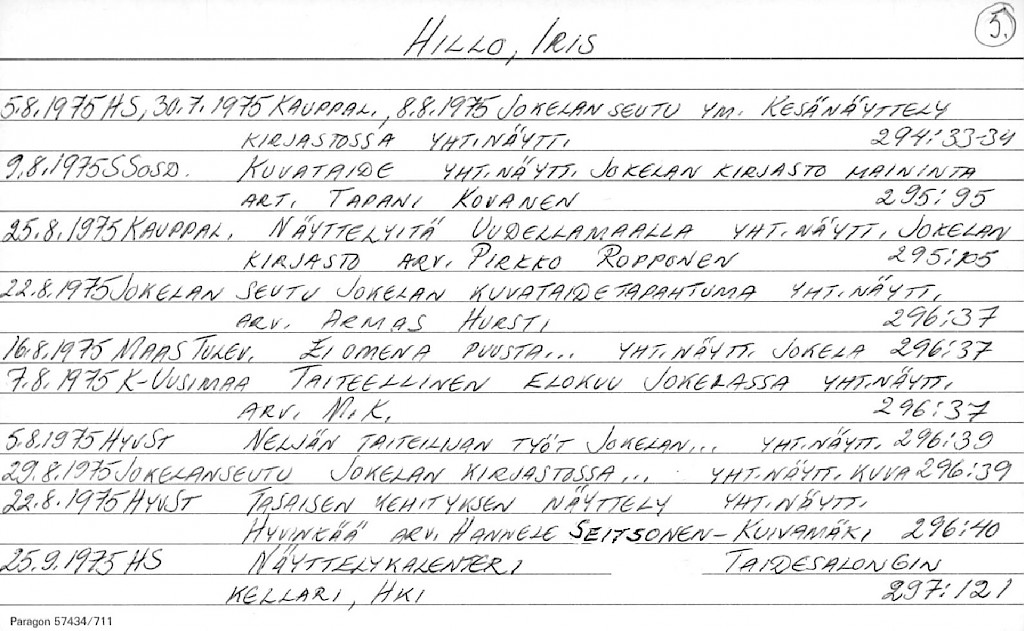 5.
HILLO, IRIS
5.8.1975 HS, 30.7.1975 KAUPPAL., 8.8.1975 JOKELAN SEUTU YM. KESÄNÄYTTELY
KIRJASTOSSA YHT.NÄYTT. 294:33-34
9.8.1975 SSOSD. KUVATAIDE YHT.NÄYTT. JOKELAN KIRJASTO MAININTA
ART. TAPANI KOVANEN 295:95
25.8.1975 KAUPPAL. NÄYTTELYITÄ UUDELLAMAALLA YHT.NÄYTT. JOKELAN
KIRJASTO ARV. PIRKKO ROPPONEN 295:105
22.8.1975 JOKELAN SEUTU JOKELAN KUVATAIDETAPAHTUMA YHT.NÄYTT.
ARV. ARMAS HURSTI 296:37
16.8.1975 MAAS TULEV. EI OMENA PUUSTA... YHT.NÄYTT. JOKELA 296:37
7.8.1975 K-UUSIMAA TAITEELLINEN ELOKUU JOKELASSA YHT.NÄYTT.
ARV. M.K. 296:37
5.8.1975 HYVST NELJÄN TAITEILIJAN TYÖT JOKELAN... YHT.NÄYTT. 296:39
29.8.1975 JOKELANSEUTU JOKELAN KIRJASTOSSA... YHT.NÄYTT. KUVA 296:39
22.8.1975 HYVST TASAISEN KEHITYKSEN NÄYTTELY YHT.NÄYTT.
HYVINKÄÄ ARV. HANNELE SEITSONEN-KUIVAMÄKI 296:40
25.9.1975 HS NÄYTTELYKALENTERI TAIDESALONGIN
KELLARI, HKI 297:121
Paragon 57434/711